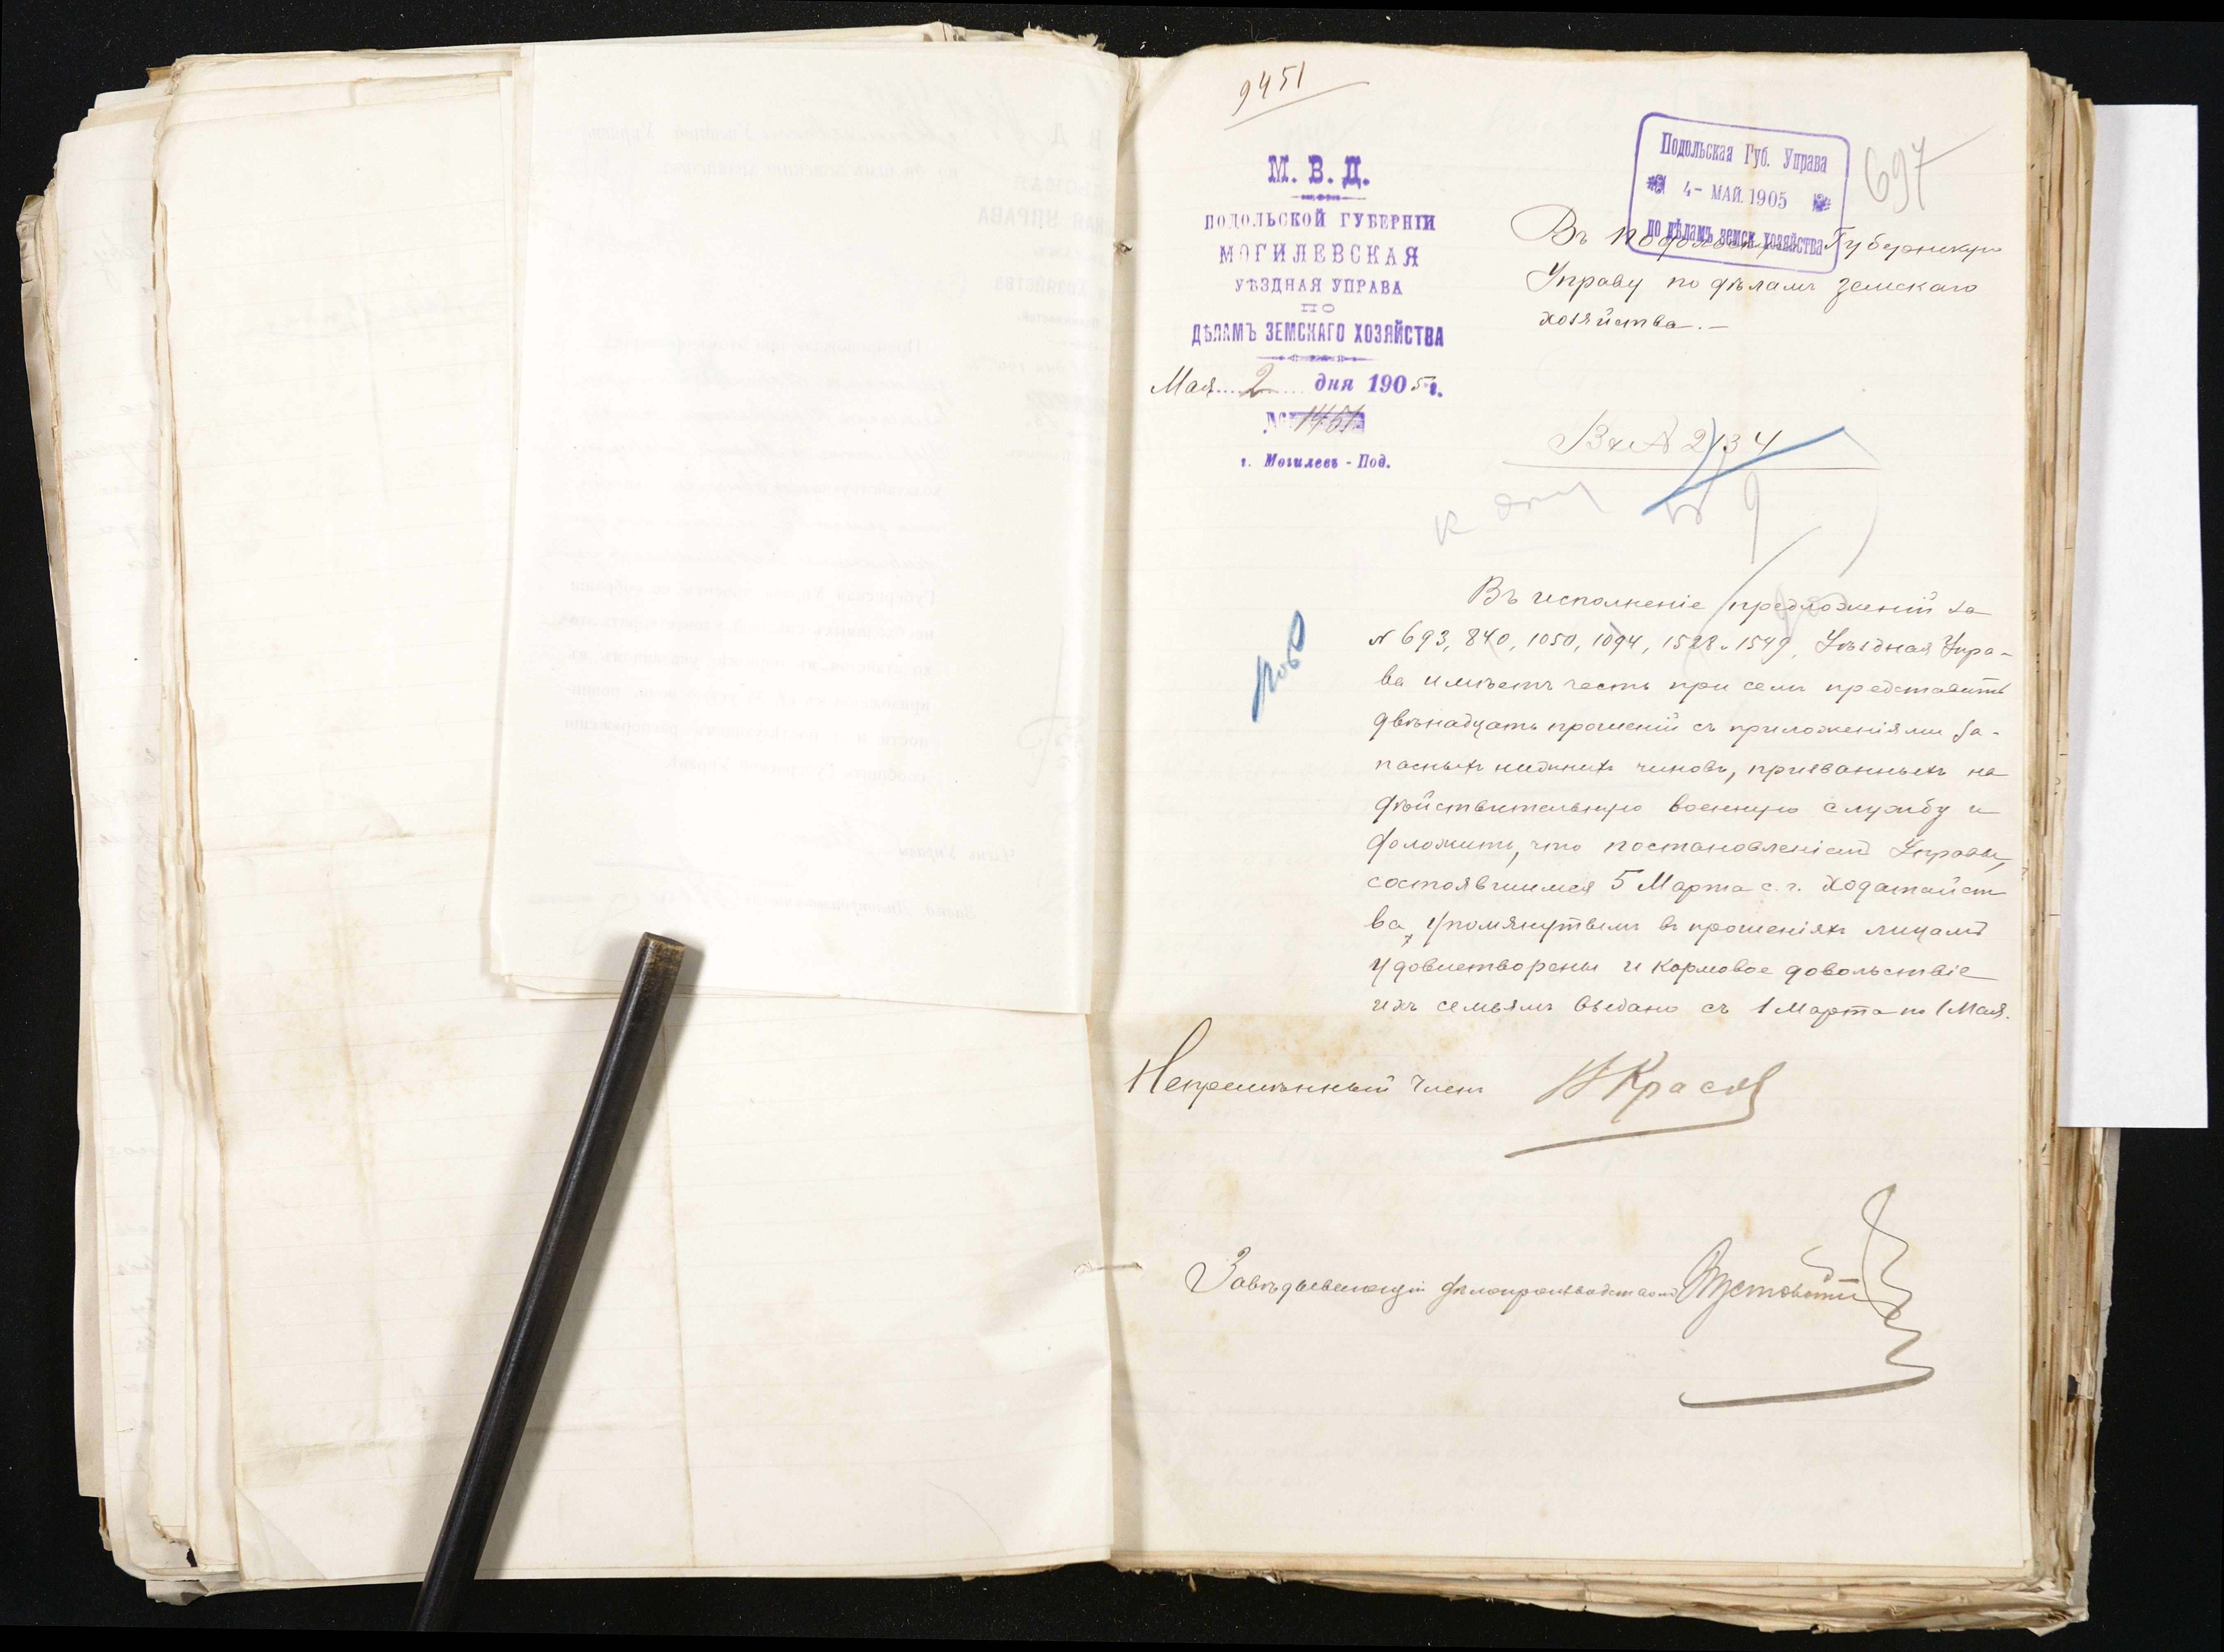 9451
М. В. Д.
ПОДОЛЬСКОЙ ГУБЕРНІИ
МОГИЛЕВСКАЯ
УѢЗДНАЯ УПРАВА
ПО
ДѢЛАМЪ ЗЕМСКАГО ХОЗЯЙСТВА
Мая 2 дня 1905 г.
№ 1451
г. Могилевъ - Под.
Подольская Губ. Управа
4 - МАЙ. 1905
по дѣламъ земск. хозяйства
697
Въ Подольскую Губернскую
Управу по дѣламъ земскаго
хозяйства. —
Вх № 2134
к делу № 9
Въ исполненіе предложеній за
№ 693, 840, 1050, 1094, 1528 и 1549, Уѣздная Упра-
ва имѣетъ честь при семъ представить
двѣнадцать прошеній съ приложеніями за-
пасныхъ нижнихъ чиновъ, призванныхъ на
дѣйствительную военную службу и
доложить, что постановленіемъ Управы,
состоявшимся 5 Марта с. г. ходатайст
ва, упомянутымъ въ прошеніяхъ лицамъ
удовлетворены и кормовое довольствіе
ихъ семьямъ выдано съ 1 Марта по 1 Мая.
Непремѣнный Членъ
Завѣдывающій дѣлопроизводствомъ